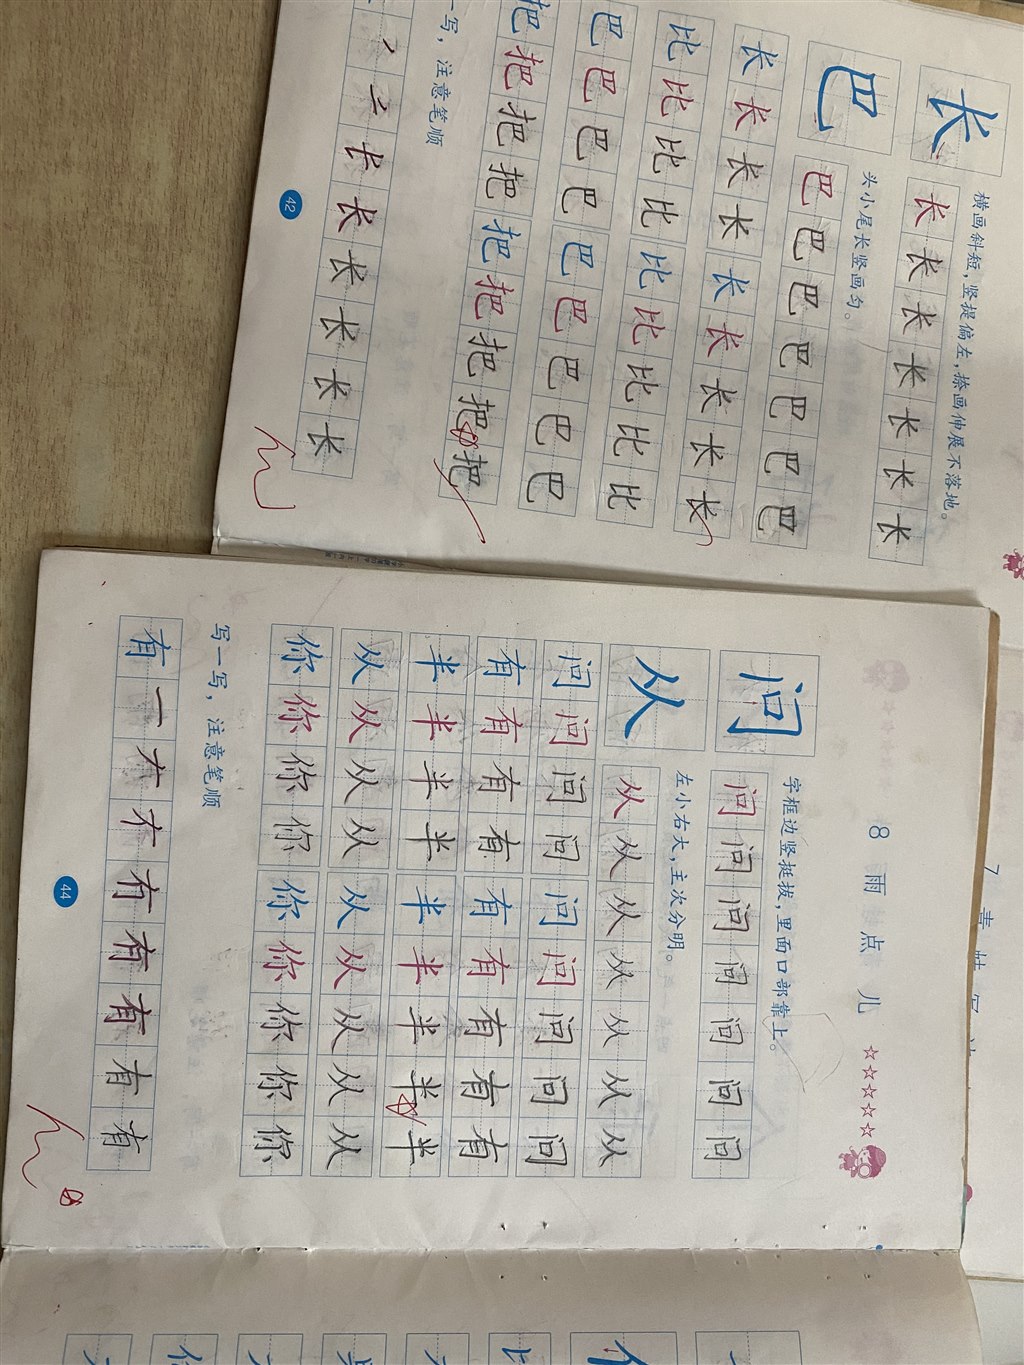 长 横画斜短，竖提偏左，捺画伸展不落地。
长长长长长长长
巴 头小尾长竖画匀。
巴巴巴巴巴巴巴
长长长长长长长长长
比比比比比比比比比
巴巴巴巴巴巴巴巴巴
把把把把把把把把把
一写，注意笔顺
长长长长长长
42
7
8 雨点儿 ☆☆☆☆☆
问 字框边竖挺拔，里面口部靠上。
问问问问问问问
从 左小右大，主次分明。
从从从从从从从
问问问问问问问问问
有有有有有有有有有
半半半半半半半半半
从从从从从从从从从
你你你你你你你你你
写一写，注意笔顺
有一ナ冇有有有有
44